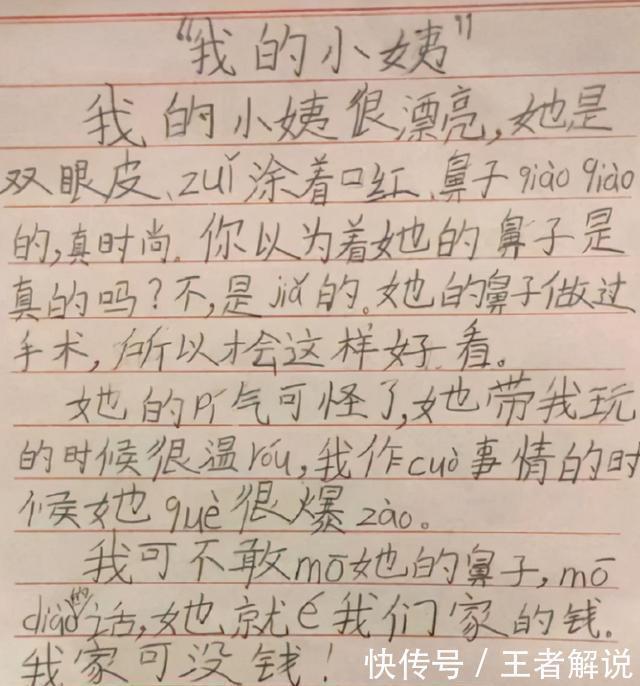 “我的小姨”
我的小姨很漂亮,她是
双眼皮、zuǐ涂着口红、鼻子qiào qiào
的,真时尚。你以为着她的鼻子是
真的吗?不,是jiǎ的。她的鼻子做过
手术,所以才会这样好看。
她的pí气可怪了,她带我玩
的时候很温róu,我作cuò事情的时
候她què很爆zào。
我可不敢mō她的鼻子,mō
diào的话,她就é我们家的钱。
我家可没钱!
快传号／王者解说